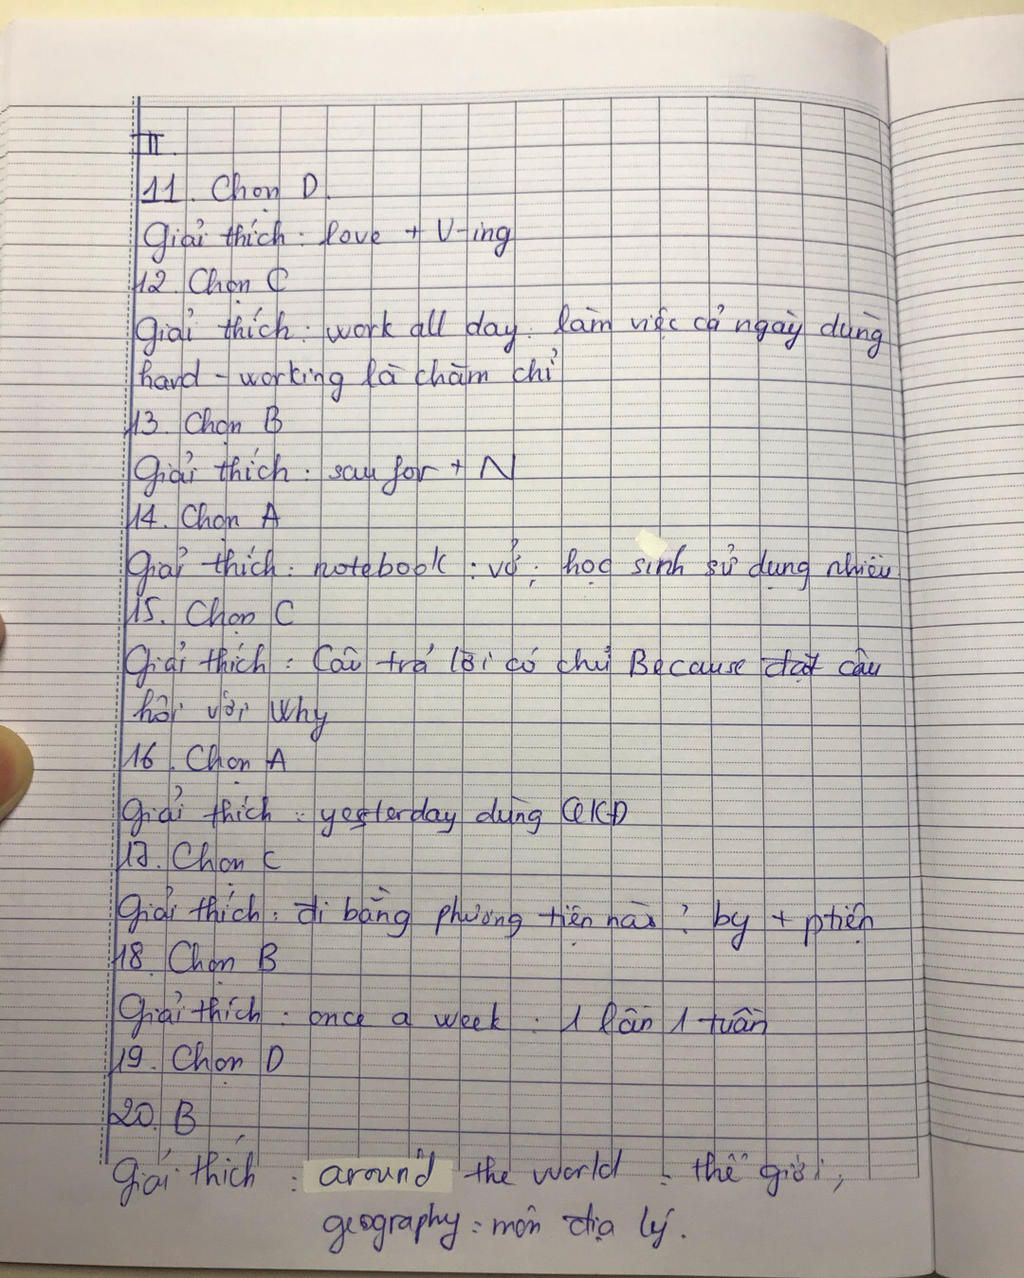 II.
11. Chọn D.
Giải thích: love + V-ing
12. Chọn C
Giải thích: work all day: làm việc cả ngày dùng
hard-working là chăm chỉ
13. Chọn B
Giải thích: sau for + N
14. Chọn A
Giải thích: notebook: vở; học sinh sử dụng nhiều
15. Chọn C
Giải thích: Câu trả lời có chữ Because đặt câu
hỏi với Why
16. Chọn A
Giải thích: yesterday dùng QKĐ
17. Chọn C
Giải thích: đi bằng phương tiện nào: by + ptiện
18. Chọn B
Giải thích: once a week: 1 lần 1 tuần
19. Chọn D
20. B
Giải thích: around the world: thế giới;
geography: môn địa lý.